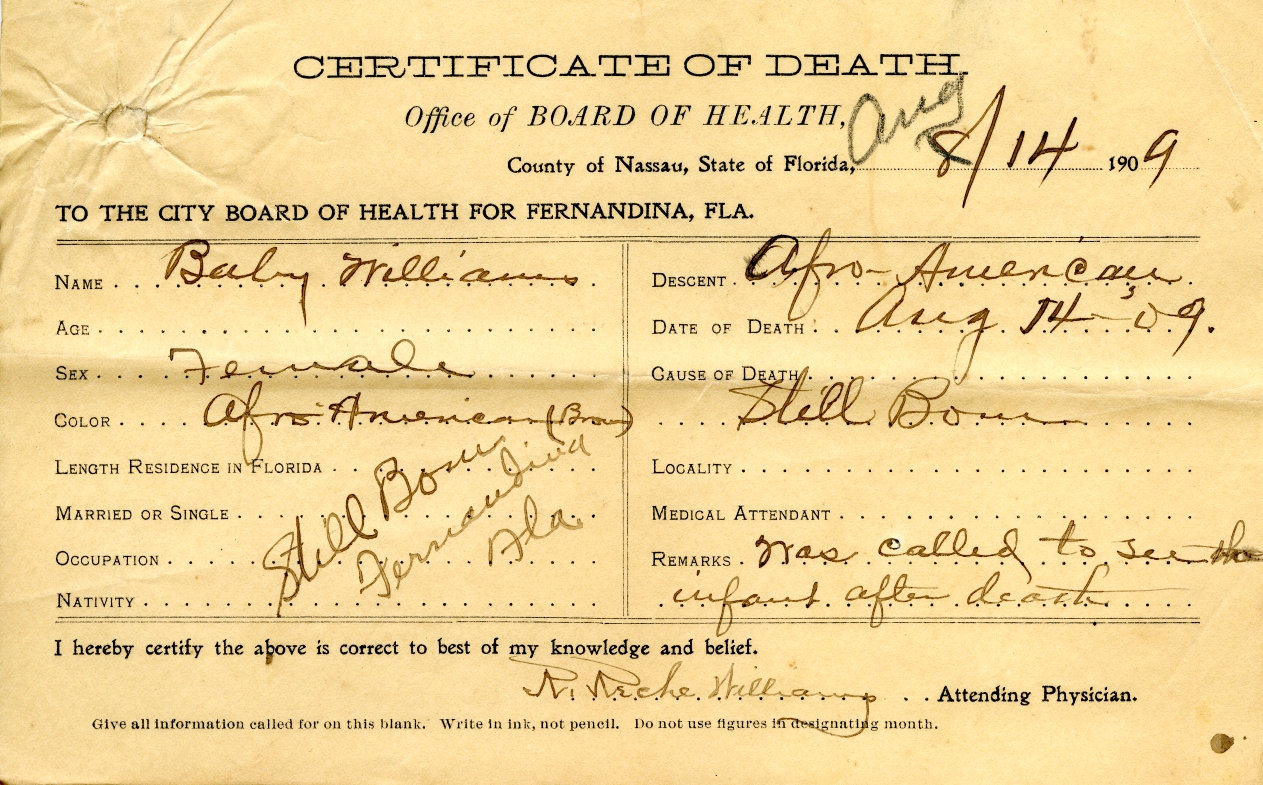 CERTIFICATE OF DEATH.
Office of BOARD OF HEALTH,
Aug
County of Nassau, State of Florida, 8/14 1909
TO THE CITY BOARD OF HEALTH FOR FERNANDINA, FLA.
NAME Baby Williams
AGE
SEX Female
COLOR Afro-American (Brown)
LENGTH RESIDENCE IN FLORIDA
MARRIED OR SINGLE
OCCUPATION
NATIVITY
Still Born
Fernandina
Fla
DESCENT Afro-American
DATE OF DEATH Aug 14-'09.
CAUSE OF DEATH
Still Born
LOCALITY
MEDICAL ATTENDANT
REMARKS Was called to see the
infant after death
I hereby certify the above is correct to best of my knowledge and belief.
Williams Attending Physician.
Give all information called for on this blank. Write in ink, not pencil. Do not use figures in designating month.